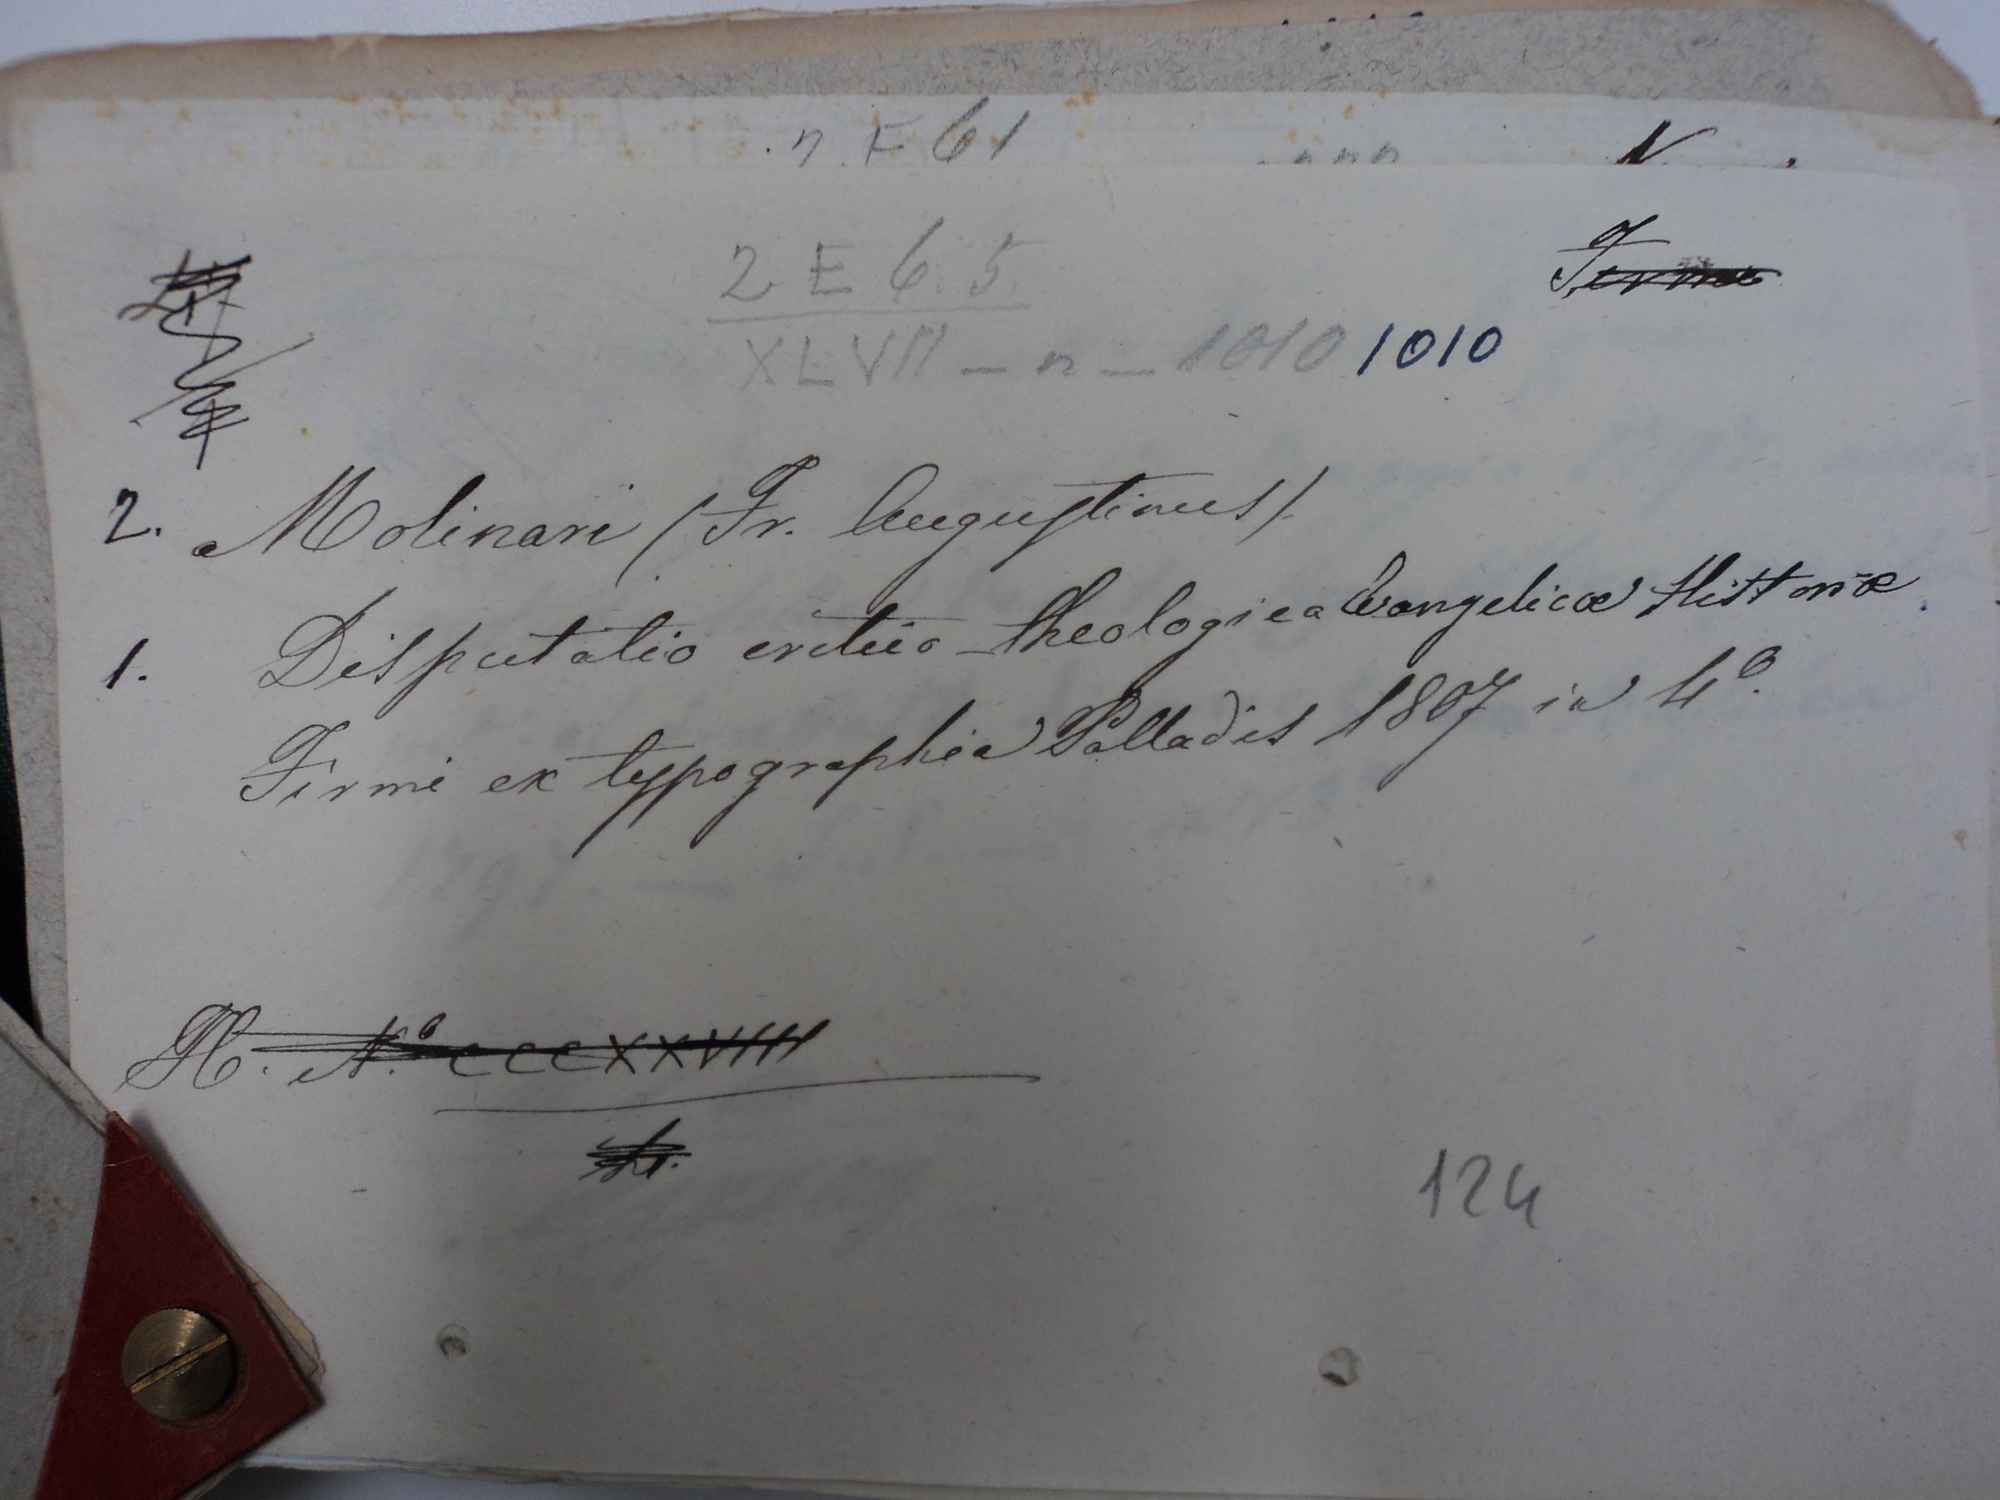 2 E 6.5
XLVII - n - 1010 1010
2. Molinari (Fr. Augustinus).
1. Disputatio critica-theologica Evangelicæ Historiæ.
Firmi ex typographia Palladis 1807 in 4º.
H. Nº CCCXXVIIII
124